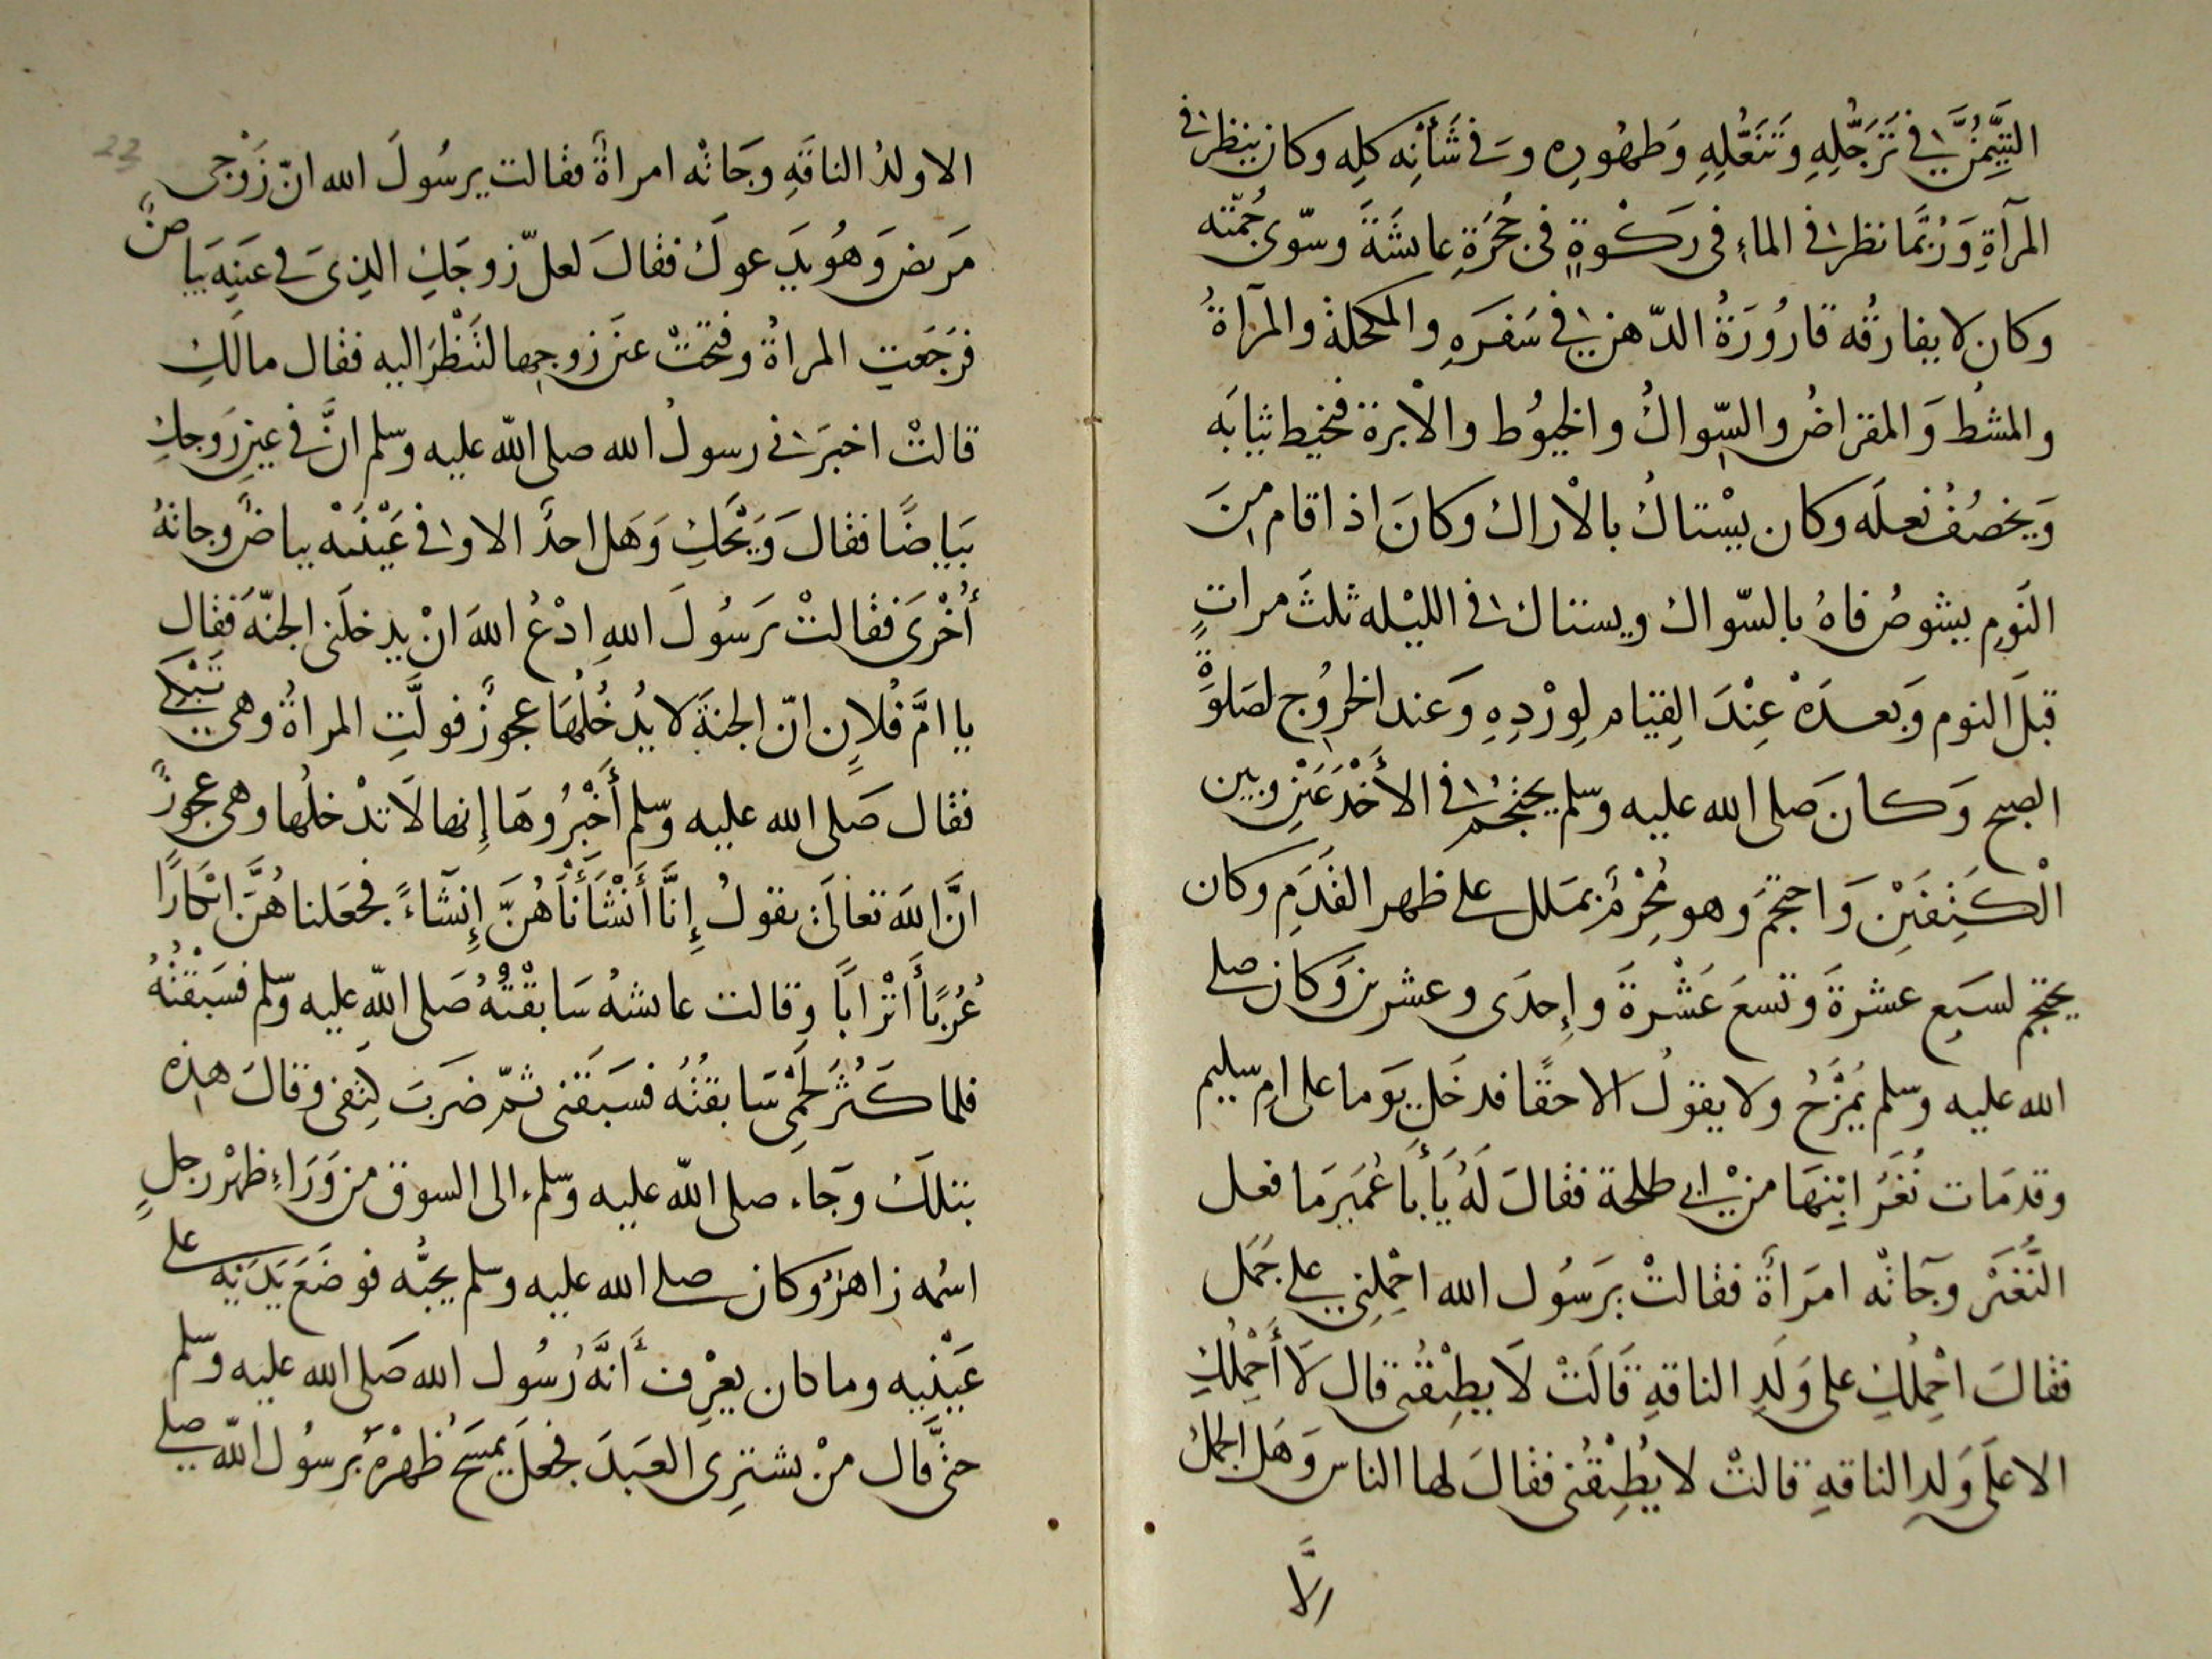 التَّيَمُّنَ في تَرَجُّلِهِ وَتَنَعُّلِهِ وَطهُورِه وَفى شَأْنِه كلِه وكان ينظر فى
المرآةِ وَرُبَّمَا نظر فى الماءِ فى رَكْوةٍ فى حُجْرَةِ عايشَةَ وسوّى جُمّته
وكان لا يفارقُه قارُورَةُ الدّهن في سَفَرَهِ والمكحلة والمرآةُ
والمشُط وَالمقراضُ والسّواكُ والخيوُط والاْبرة فيخيط ثيابَه
وَيخصُفُ نعلَه وكان يسْتاكُ بالاْراك وكانَ اذا قام مِنَ
النَومِ يشوصُ فاهُ بالسّواك ويستاك فى الليْله ثلثَ مراتٍ
قبلَ النوم وَبعدَهْ عِنْدَ القِيَام لِورْدِهِ وَعند الخرُوج لصَلوَةٍ
الصبح وَكانَ صَلى الله عليه وسلم يحتجمُ فى الأَخْدَعَيْنِ وبين
الْكَتِفَيْنِ وَاحتجَمَ وهو مُحْرِمٌ بمَلل على ظهر القَدَمِ وكان
يحتجم لسَبعِ عشرةَ وتسعَ عَشْرةَ وإِحدَى وعشرين وَكان صلى
الله عليه وسلم يَمْزَحُ ولا يقولُ الا حقًا فدخَل يَوما على امِ سليم
وقد مَات نُغَرُ ابْنِهَا من ابي طلحة فقالَ لَهُ يَا أَبَا عُمَيرَ مَا فعل
النُّغَيْر وَجَآتْه امَرأَة فقالتْ يرَسُول الله احْمِلنِى على جَمَل
فقالَ احْمِلُكِ على وَلَدِ الناقةِ قَالَتْ لَا يطِيْقُنى قال لَا أَحْمِلُكِ
الا علَى وَلدِ الناقهِ قالتْ لا يُطِيْقُنى فقالَ لها الناس وَهَل الجملُ
الَّا
الا ولدُ الناقَهِ وجَاتْه امراةٌ فقالت يرسُولَ الله انّ زَوْجى
مَريضَ وَهُو يَدعوكَ فقالَ لعلّ زوجَكِ الذِى فى عَينِه بَياضٌ
فرَجَعتِ المراةُ وفتحَتْ عيَن زوجِها لتَنْظُرَ اليه فقال مالَكِ
قالتْ اخبَرنى رسولُ الله صلى اللّه عليه وسلم انَّ فى عينِ زَوجكِ
بَيَاضًا فقالَ وَيْحَكِ وَهَل احدٌ الا وفى عَيْنَيْه بياضٌ وجاتهُ
أُخْرَى فقالتْ يرَسُولَ اللهِ ادْعُ اللهَ انْ يدخلَنى الجنّهَ فقال
يا امَّ فُلاٍن انّ الجنةَ لا يُدْخُلُهَا عجوزٌ فولَّتِ المراةُ وهى تَبْكى
فقال صَلى الله عليه وسّلم أَخْبُرُوهَا إِنها لَا تدْخلُها وهى عجوزٌ
انَّ اللهَ تعالَىٰ يقولُ إِنَّا أَنْشَأْنَاهُنَّ إِنشَآءً فجَعَلنا هُنَّ ابْكَارًا
عُرُبًا أَتْرَابًا وقالت عايشهُ سَابقْتُهُ صَلى اللّه عليه وسلم فسَبَقْتُهُ
فلما كَثُرَ لَحْمِى سَابقتُهُ فسَبَقَنى ثمّ ضرَبَ كِتفى وقالَ هذِه
بتلكَ وجَاء صلى اللّه عليه وسّلم الى السوق من وَرَاءِ ظهْر رَجلٍ
اسُمه زاهرٌ وكان صلى الله عليه وسلم يحبُّه فوضَعَ يَدَيْه على
عَيْنيه وما كان يعْرِف أَنَّهُ رُسُول الله صَلى الله عليه وسلم
حتىَّ قال مَنْ يشترِى العَبدَ فجعلَ يمسَحُ ظهْرَهُ برسُول اللّه صلى